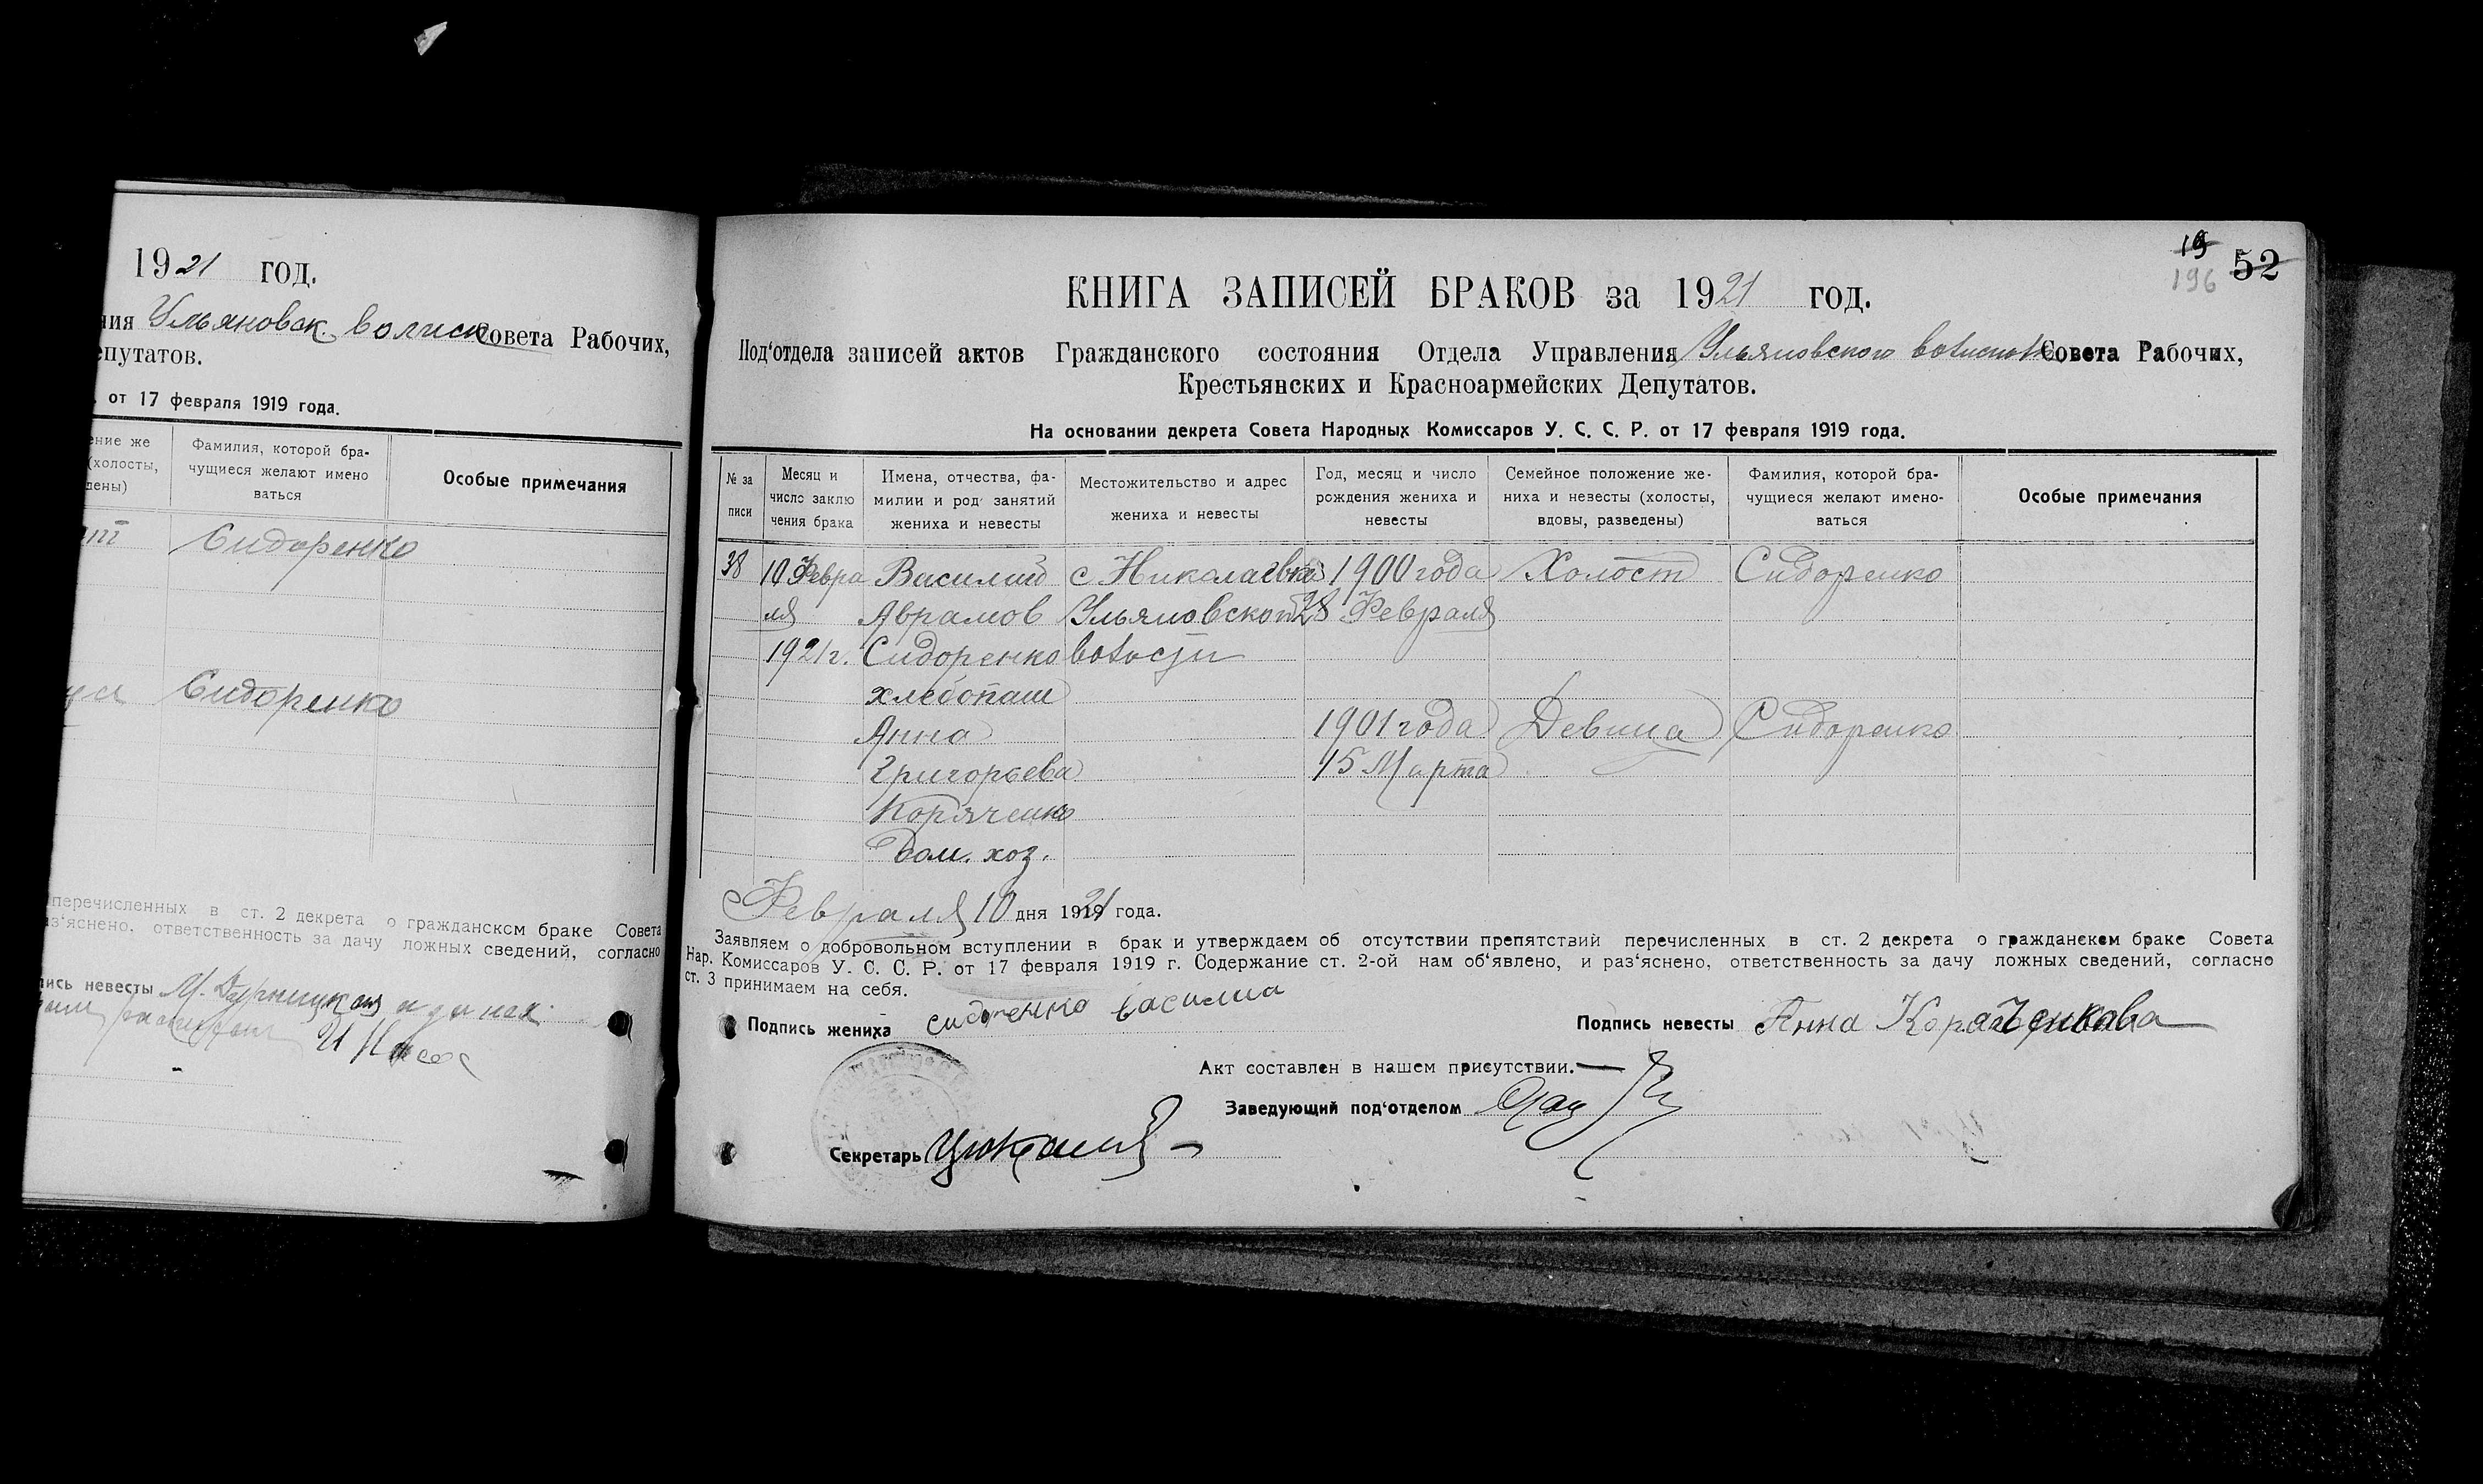 1921 год.
ния Ульяновск. волиск Совета Рабочих,
епутатов.
. от 17 февраля 1919 года.
ение же
(холосты,
дены)
Фамилия, которой бра-
чущиеся желают имено
ваться
Особые примечания
Сидоренко
Сидоренко
перечисленных в ст. 2 декрета о гражданском браке Совета
из‘яснено, ответственность за дачу ложных сведений, согласно
пись невесты
19
196 52
КНИГА ЗАПИСЕЙ БРАКОВ за 1921 год.
Под‘отдела записей актов Гражданского состояния Отдела Управления Ульяновского Совета Рабочих,
Крестьянских и Красноармейских Депутатов.
На основании декрета Совета Народных Комиссаров У. С. С. Р. от 17 февраля 1919 года.
№ за
писи
Месяц и
число заклю
чения брака
Имена, отчества, фа-
милии и род занятий
жениха и невесты
Местожительство и адрес
жениха и невесты
Год, месяц и число
рождения жениха и
невесты
Семейное положение же-
ниха и невесты (холосты,
вдовы, разведены)
Фамилия, которой бра-
чущиеся желают имено-
ваться
Особые примечания
38 10 Февра Василий с Николаевка 1900 года Холост Сидоренко
ля Аврамов Ульяновской 28 Февраля
1921 г. Сидоренко волости
хлебопаш
Анна 1901 года Девица Сидоренко
Григорьева 15 Марта
Коряченко
Дом. хоз.
Февраля 10 дня 1921 года.
Заявляем о добровольном вступлении в брак и утверждаем об отсутствии препятствий перечисленных в ст. 2 декрета о гражданском браке Совета
Нар. Комиссаров У. С. С. Р. от 17 февраля 1919 г. Содержание ст. 2-ой нам об‘явлено, и раз‘яснено, ответственность за дачу ложных сведений, согласно
ст. 3 принимаем на себя.
Подпись жениха сидоренко василий
Подпись невесты Анна Коряченкова
Акт составлен в нашем присутствии.
Заведующий под‘отделом
Секретарь